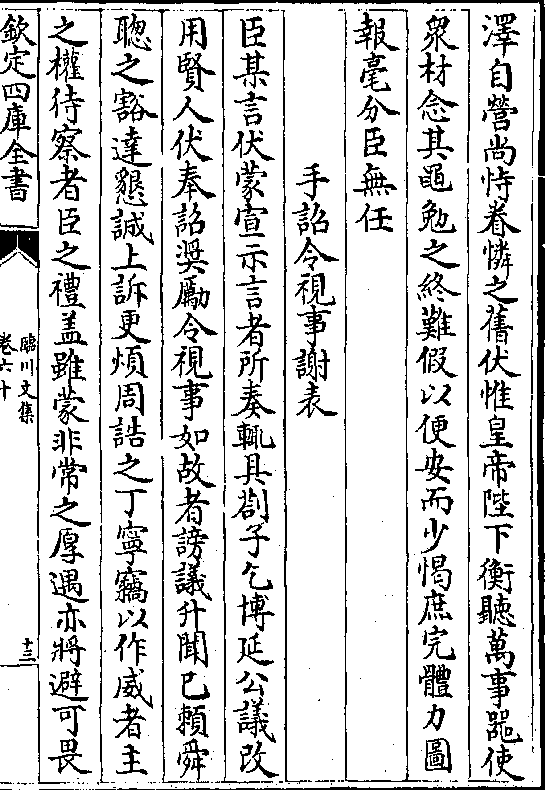 澤自營尚恃眷憐之舊伏惟皇帝陛下衡聽萬事器使
衆材念其黽勉之終難假以便安而少愒庶完體力圖
報毫分臣無任
手詔令視事謝表
臣某言伏蒙宣示言者所奏輒具劄子乞博延公議改
用賢人伏奉詔奨勵令視事如故者謗議升聞已賴舜
聰之豁達懇誠上訴更煩周誥之丁寧竊以作威者主
之權待察者臣之禮盖雖蒙非常之厚遇亦將避可畏
欽定四庫全書
臨川文集
卷六十
十三